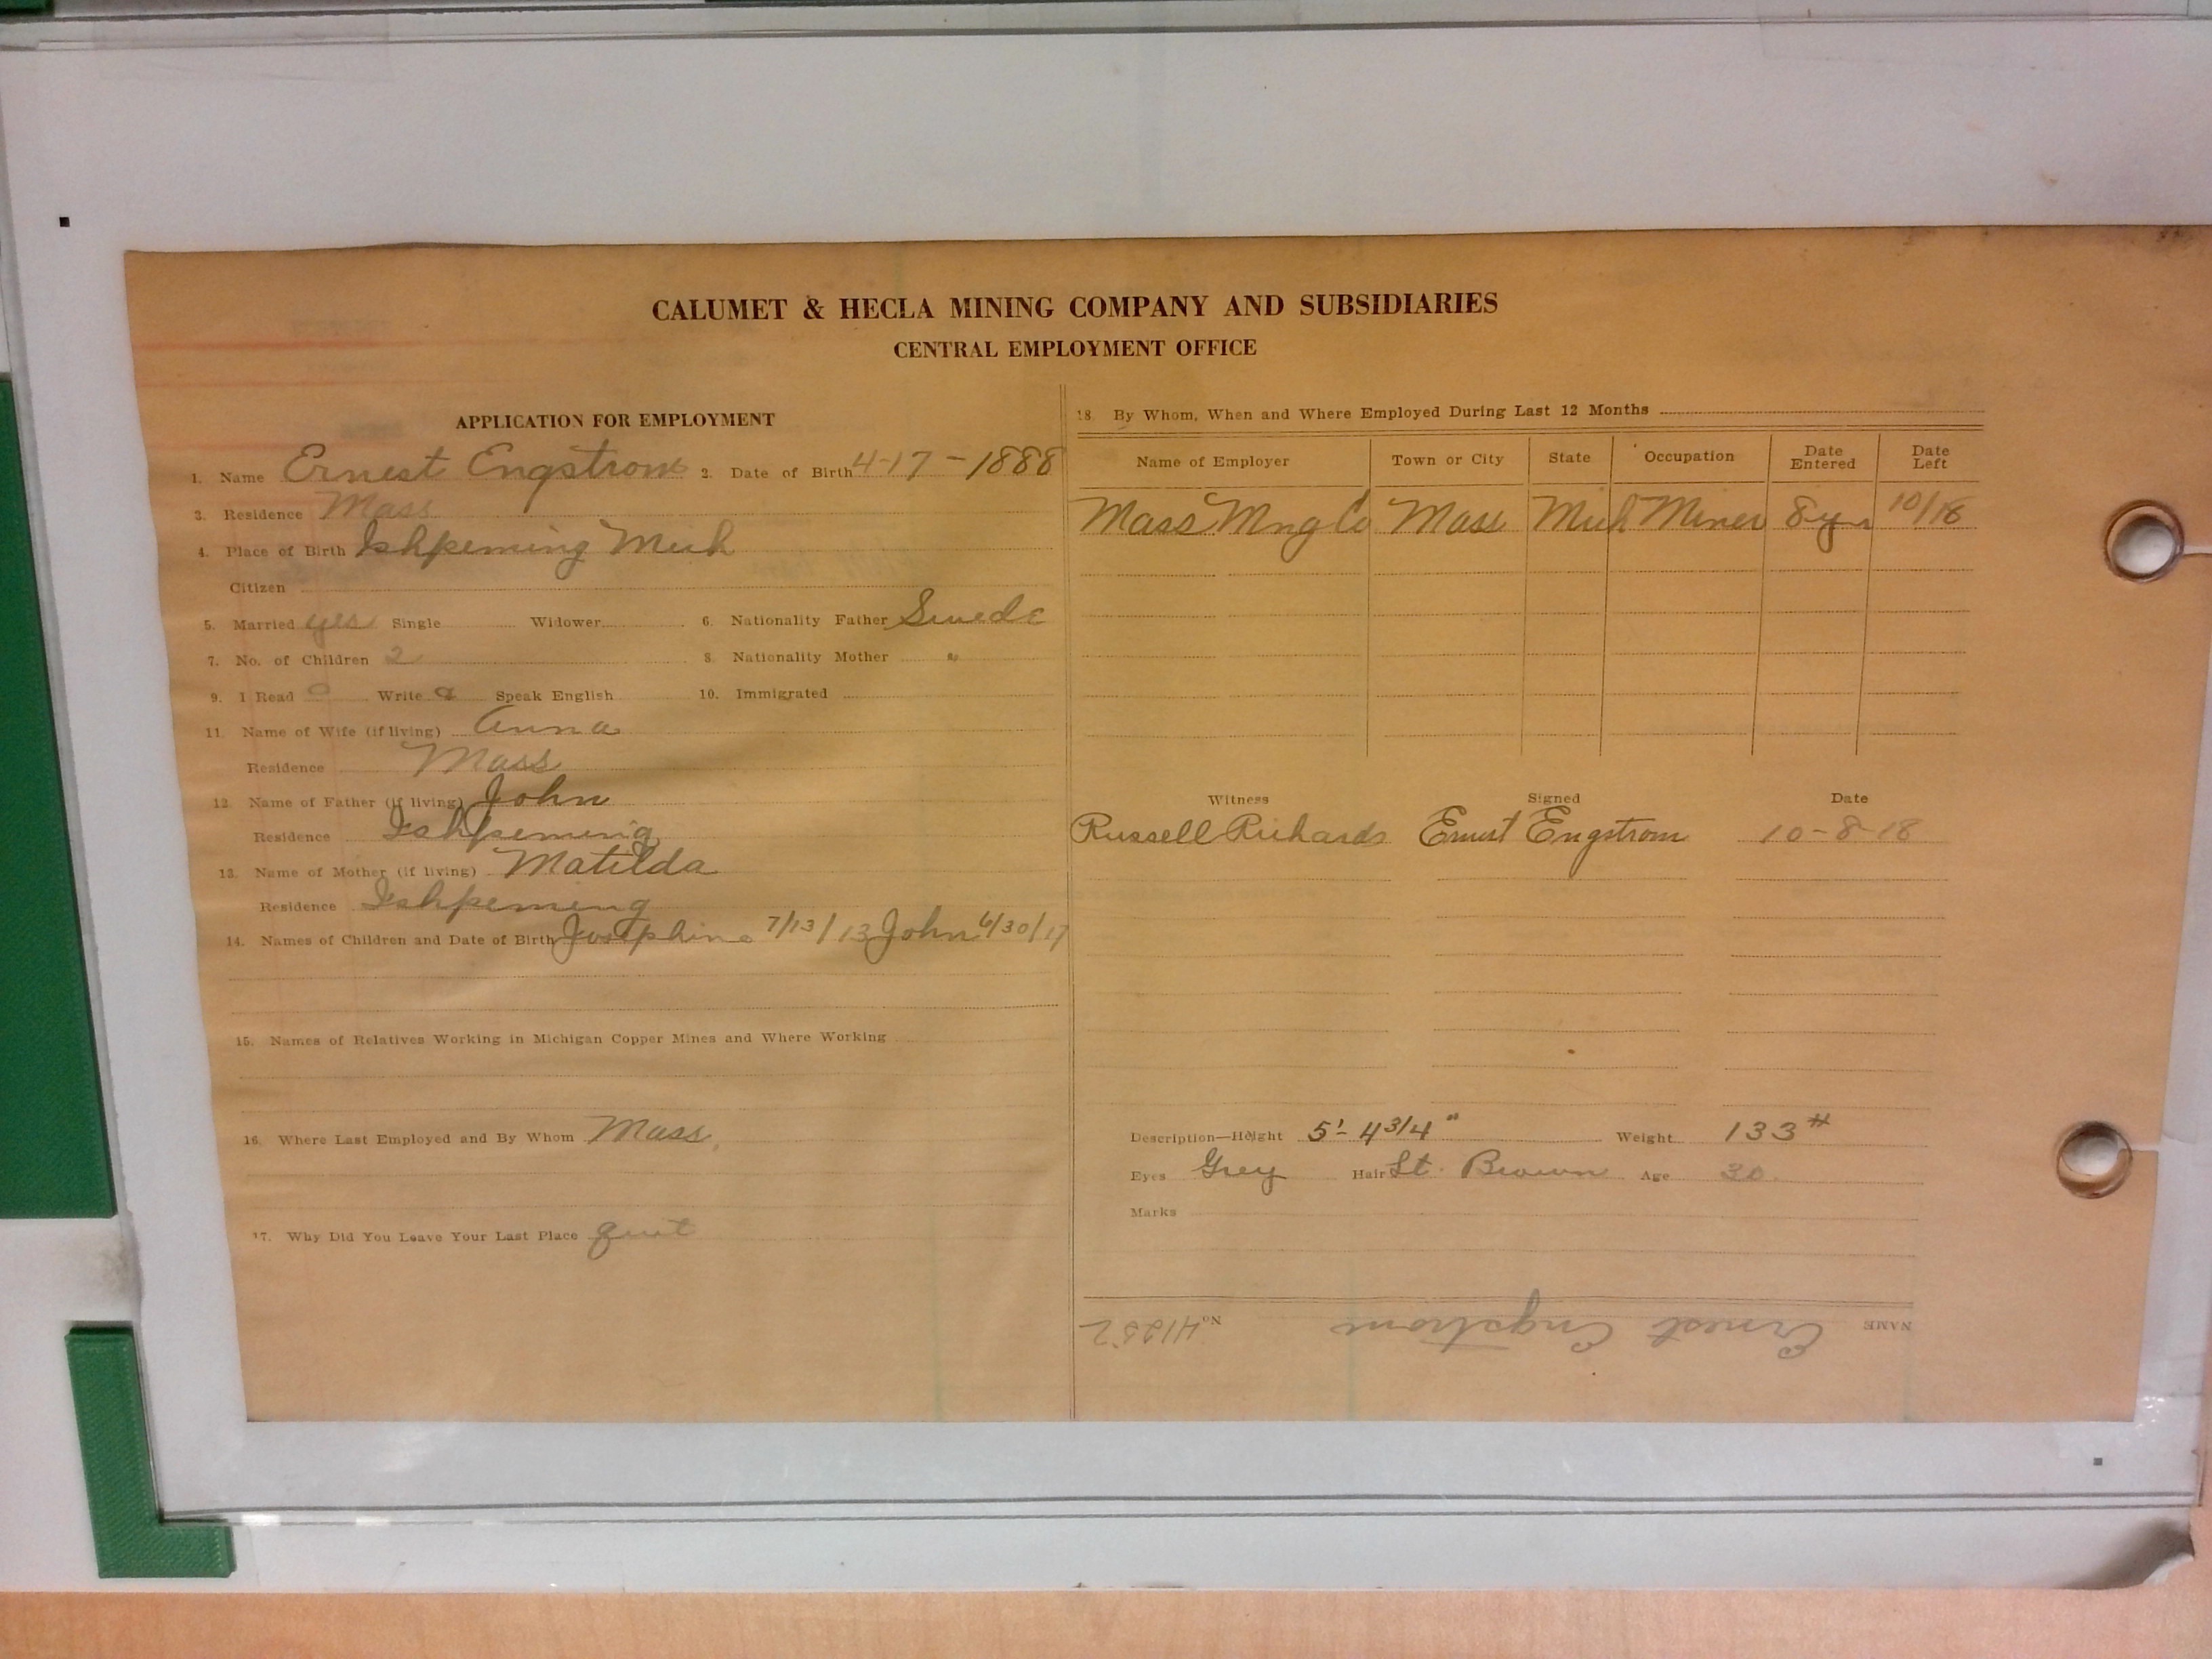 CALUMET & HECLA MINING COMPANY AND SUBSIDIARIES
CENTRAL EMPLOYMENT OFFICE
APPLICATION FOR EMPLOYMENT
1. Name Ernest Engstrom 2. Date of Birth 4-17-1888
3. Residence Mass
4. Place of Birth Ishpeming Mich
Citizen
5. Married yes Single Widower 6. Nationality Father Swede
7. No. of Children 2 8. Nationality Mother "
9. I Read Write Speak English 10. Immigrated
11. Name of Wife (if living) Anna
Residence Mass
12. Name of Father (if living) John
Residence Ishpeming
13. Name of Mother (if living) Matilda
Residence Ishpeming
14. Names of Children and Date of Birth Josephine 7/13/13 John 6/30/17
15. Names of Relatives Working in Michigan Copper Mines and Where Working
16. Where Last Employed and By Whom Mass.
17. Why Did You Leave Your Last Place quit
18. By Whom, When and Where Employed During Last 12 Months
Name of Employer Town or City State Occupation Date Entered Date Left
Mass Mng Co Mass Mich Miner 8 yrs 10/18
Witness Signed Date
Russell Richards Ernest Engstrom 10-8-18
Description—Height 5'- 4 3/4" Weight 133 #
Eyes Grey Hair Lt. Brown Age 30
Marks
NAME Ernest Engstrom No. 41252